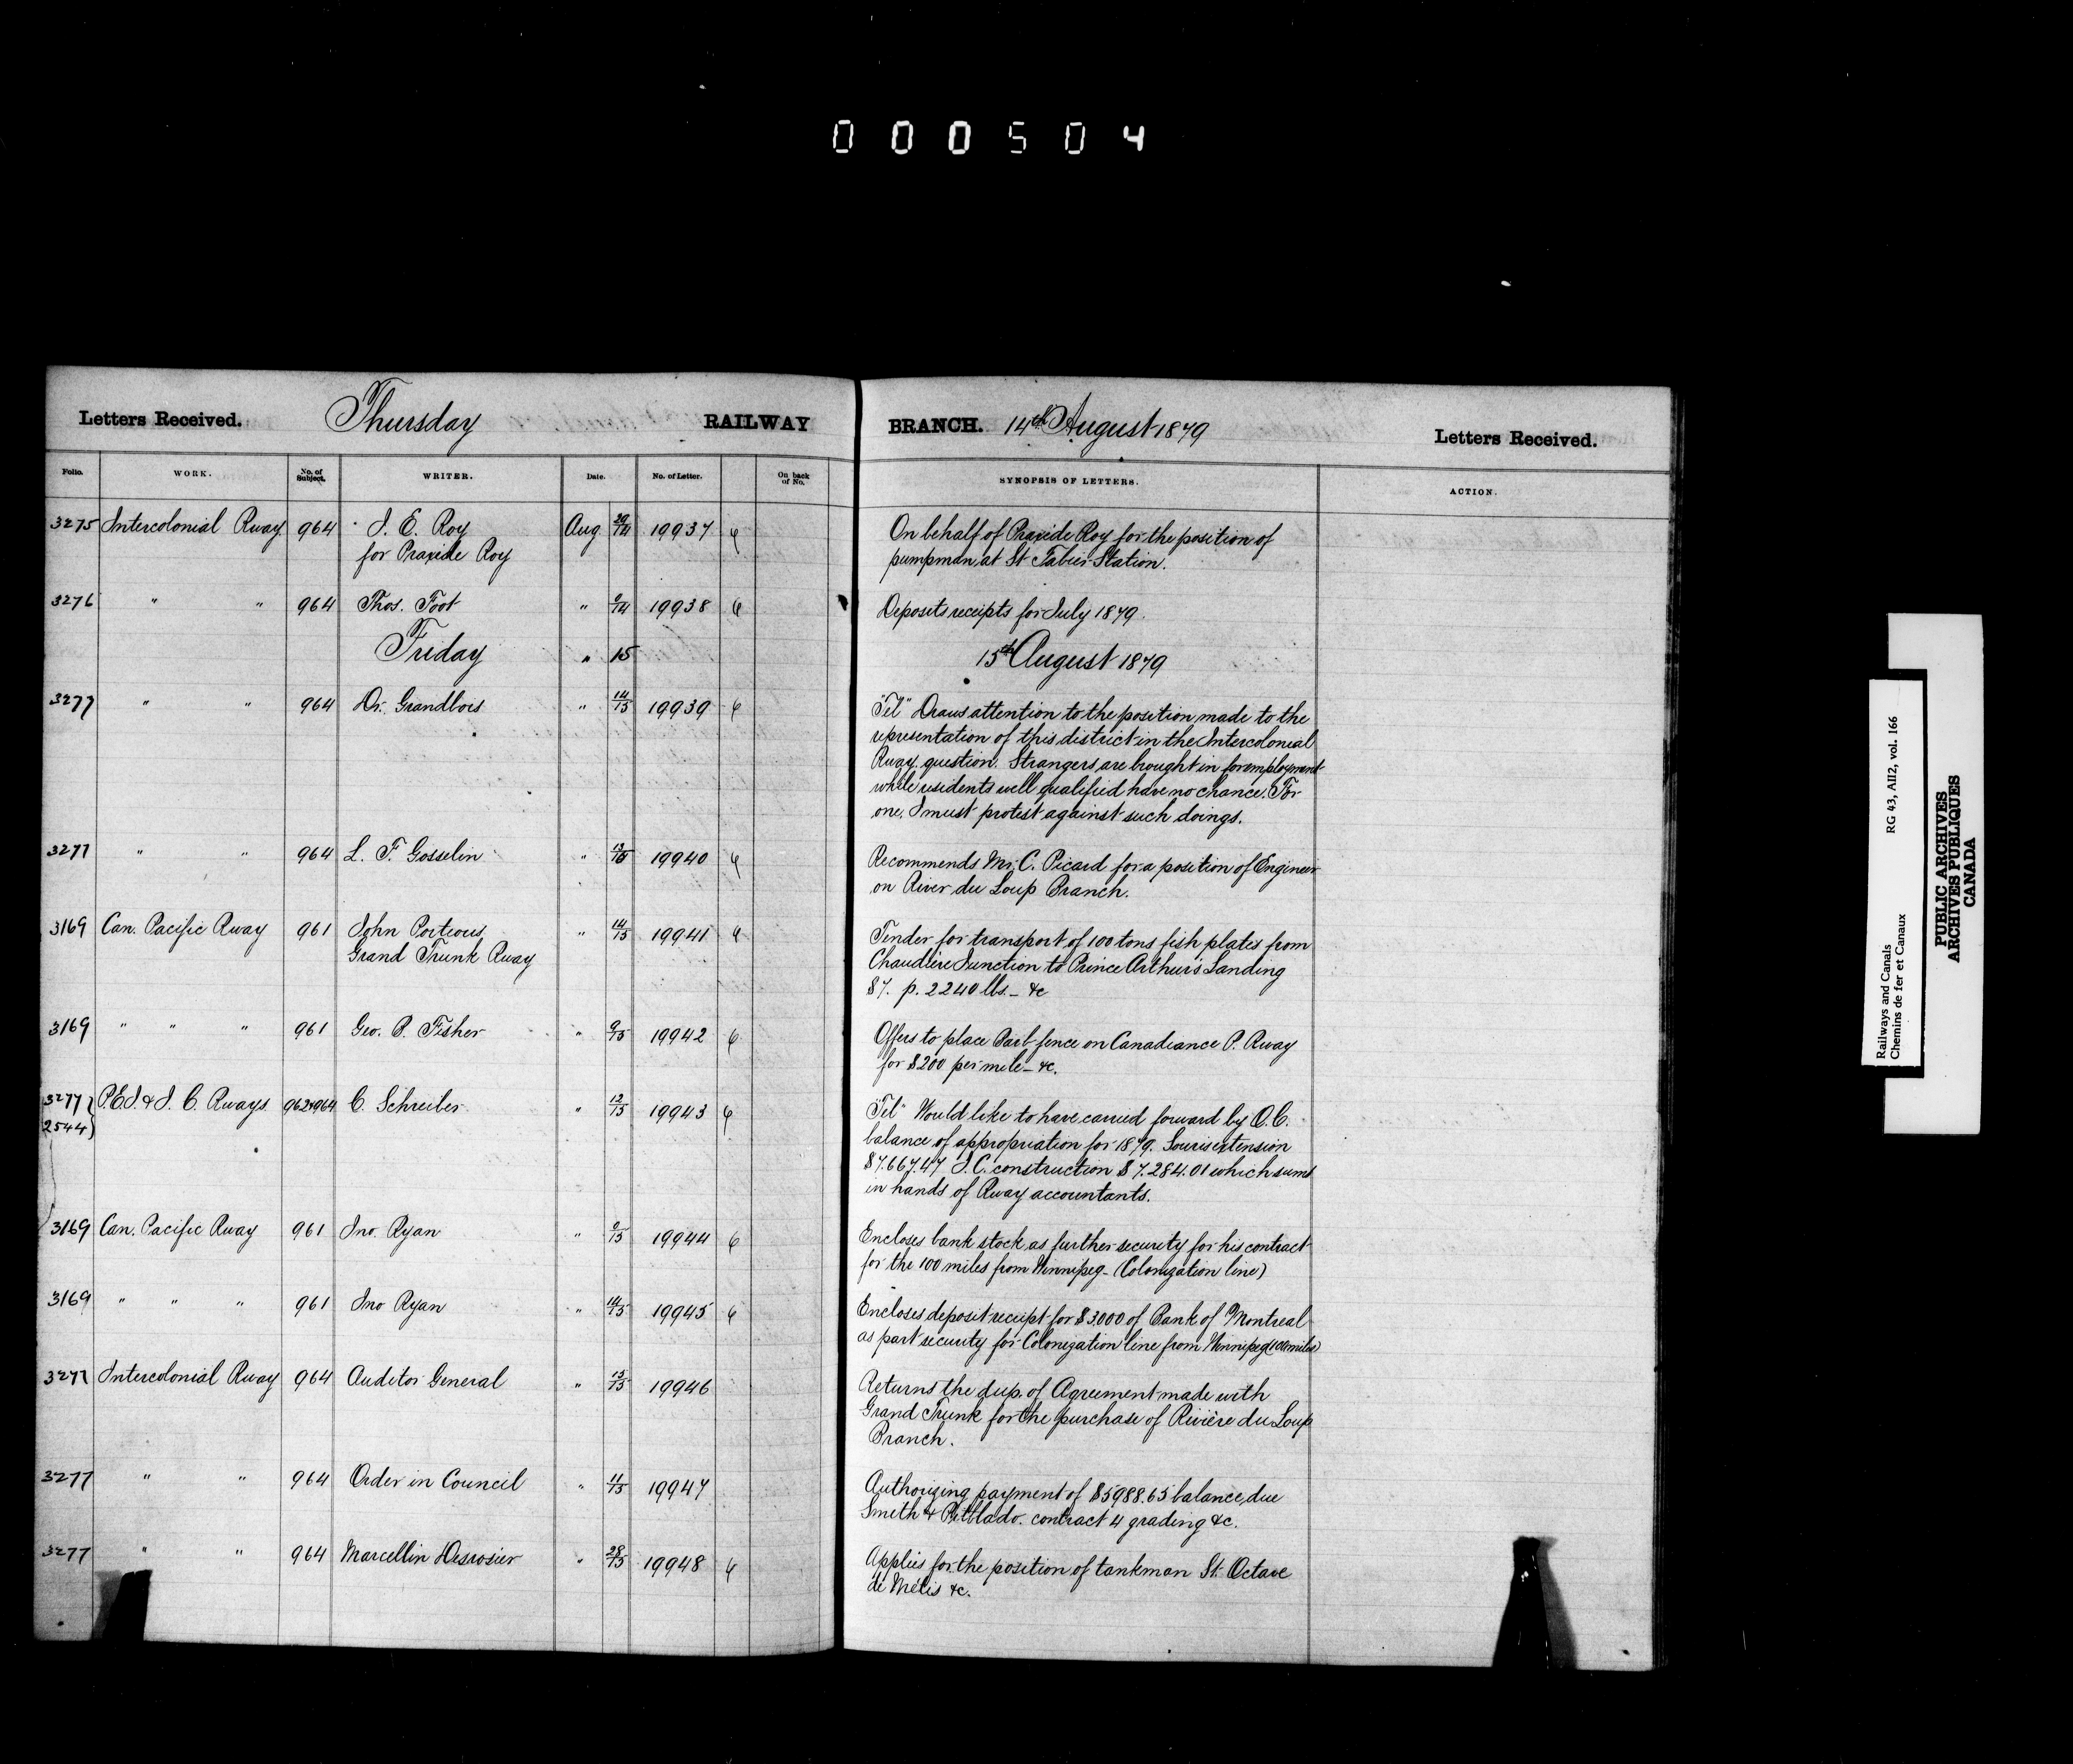 000504
Letters Received. Thursday RAILWAY BRANCH. 14th August 1879 Letters Received.
Folio. WORK. No. of Subject. WRITER. Date. No. of Letter. On back of No. SYNOPSIS OF LETTERS. ACTION.
3275 Intercolonial Rway 964 J. E. Roy Aug 29/14 19937 On behalf of Praxide Roy for the position of
for Praxide Roy pumpman at St Fabien Station.
3276 " " 964 Thos. Foot " 9/14 19938 Deposits receipts for July 1879.
Friday " 15 15th August 1879
3277 " " 964 Dr. Grandbois " 14/15 19939 "Tel" Draws attention to the position made to the
representation of this district in the Intercolonial
Rway question. Strangers are brought in for employment
while residents well qualified have no chance. For
one, I must protest against such doings.
3277 " " 964 L. F. Gosselin " 13/15 19940 Recommends Mr. C. Picard for a position of Engineer
on River du Loup Branch.
3169 Can. Pacific Rway 961 John Porteous, " 14/15 19941 Tender for transport of 100 tons fish plates from
Grand Trunk Rway Chaudière Junction to Prince Arthur's Landing
$7. p. 2240 lbs. - &c
3169 " " " 961 Geo. B. Fisher " 9/15 19942 Offers to place Barb fence on Canadiance P. Rway
for $200 per mile - &c.
3277 } P.E.I. & I. C. Rways. 962+964 C. Schreiber " 12/15 19943 "Tel" Would like to have carried forward by O.C.
2544 } balance of appropriation for 1879. Souris extension
$7.667.47 I.C. construction $7.284.01 which sums
in hands of Rway accountants.
3169 Can. Pacific Rway 961 Jno. Ryan " 9/15 19944 Encloses bank stock as further security for his contract
for the 100 miles from Winnipeg - (Colonization line)
3169 " " " 961 Jno Ryan " 14/15 19945 Encloses deposit receipt for $3,000 of Bank of Montreal
as part security for Colonization line from Winnipeg (100 miles)
3277 Intercolonial Rway 964 Auditor General " 15/15 19946 Returns the dup. of Agreement made with
Grand Trunk for the purchase of Rivière du Loup
Branch.
3277 " " 964 Order in Council " 11/15 19947 Authorizing payment of $5988.65 balance due
Smith & Pitblado. contract 4 grading &c.
3277 " " 964 Marcellin Desrosier " 28/15 19948 Applies for the position of tankman St. Octave
de Métis &c.
Railways and Canals RG 43, AII2, vol. 166
Chemins de fer et Canaux
PUBLIC ARCHIVES
ARCHIVES PUBLIQUES
CANADA